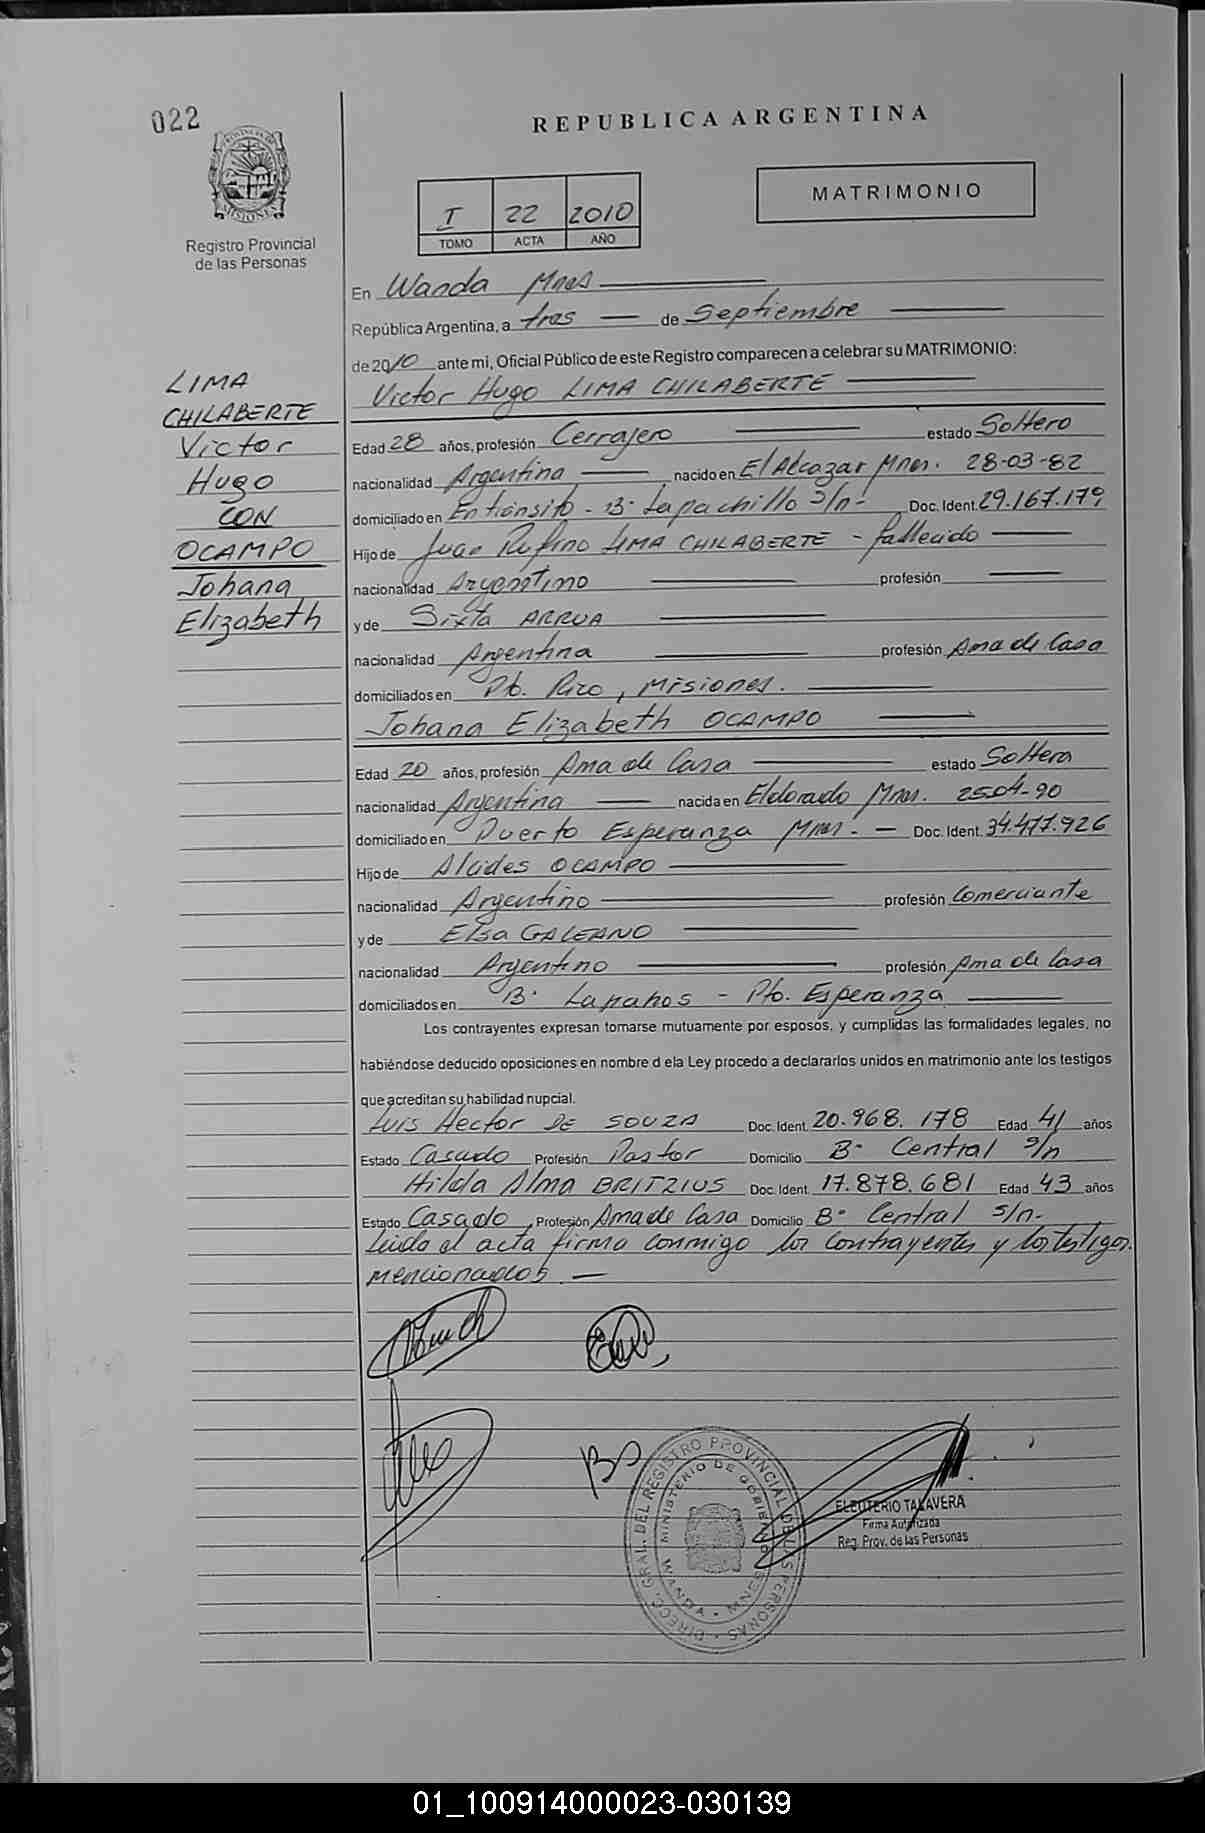 022
REPUBLICA ARGENTINA
PROVINCIA DE
MISIONES
Registro Provincial
de las Personas
I 22 2010
TOMO ACTA AÑO
MATRIMONIO
En Wanda Mnes
República Argentina, a tres — de Septiembre
de 2010 ante mi, Oficial Público de este Registro comparecen a celebrar su MATRIMONIO:
Victor Hugo LIMA CHILABERTE
LIMA
CHILABERTE
Victor
Hugo
CON
OCAMPO
Johana
Elizabeth
Edad 28 años, profesión Cerrajero estado Soltero
nacionalidad Argentina nacido en El Alcazar Mnes. 28-03-82
domiciliado en En tránsito - B· Lapachillo S/n- Doc. Ident. 29.167.179
Hijo de Juan Rufino LIMA CHILABERTE - fallecido
nacionalidad Argentino profesión
y de Sixta ARRUA
nacionalidad Argentina profesión Ama de Casa
domiciliados en Pto. Rico, Misiones.
Johana Elizabeth OCAMPO
Edad 20 años, profesión Ama de Casa estado Soltera
nacionalidad Argentina nacida en Eldorado Mnes. 25-04-90
domiciliado en Puerto Esperanza Mnes. — Doc. Ident. 34.477.926
Hijo de Alcides OCAMPO
nacionalidad Argentino profesión Comerciante
y de Elsa GALEANO
nacionalidad Argentino profesión Ama de Casa
domiciliados en B· - Pto. Esperanza
Los contrayentes expresan tomarse mutuamente por esposos, y cumplidas las formalidades legales, no
habiéndose deducido oposiciones en nombre d ela Ley procedo a declararlos unidos en matrimonio ante los testigos
que acreditan su habilidad nupcial.
Luis Hector DE SOUZA Doc. Ident. 20.968.178 Edad 41 años
Estado Casado Profesión Pastor Domicilio B· Central S/n
Hilda Alma BRITZIUS Doc. Ident. 17.878.681 Edad 43 años
Estado Casado Profesión Ama de Casa Domicilio B· Central S/n-
Leida el acta firma conmigo los contrayentes y los testigos.
mencionados. —
DIRECC. GRAL. DEL REGISTRO PROVINCIAL DE LAS PERSONAS
MINISTERIO DE GOBIERNO
WANDA - MNES
ELEUTERIO TALAVERA
Firma Autorizada
Reg. Prov. de las Personas
01_100914000023-030139